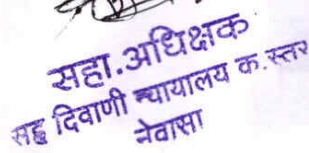 सहा.अधिक्षक
सह दिवाणी न्यायालय क.स्तर
नेवासा